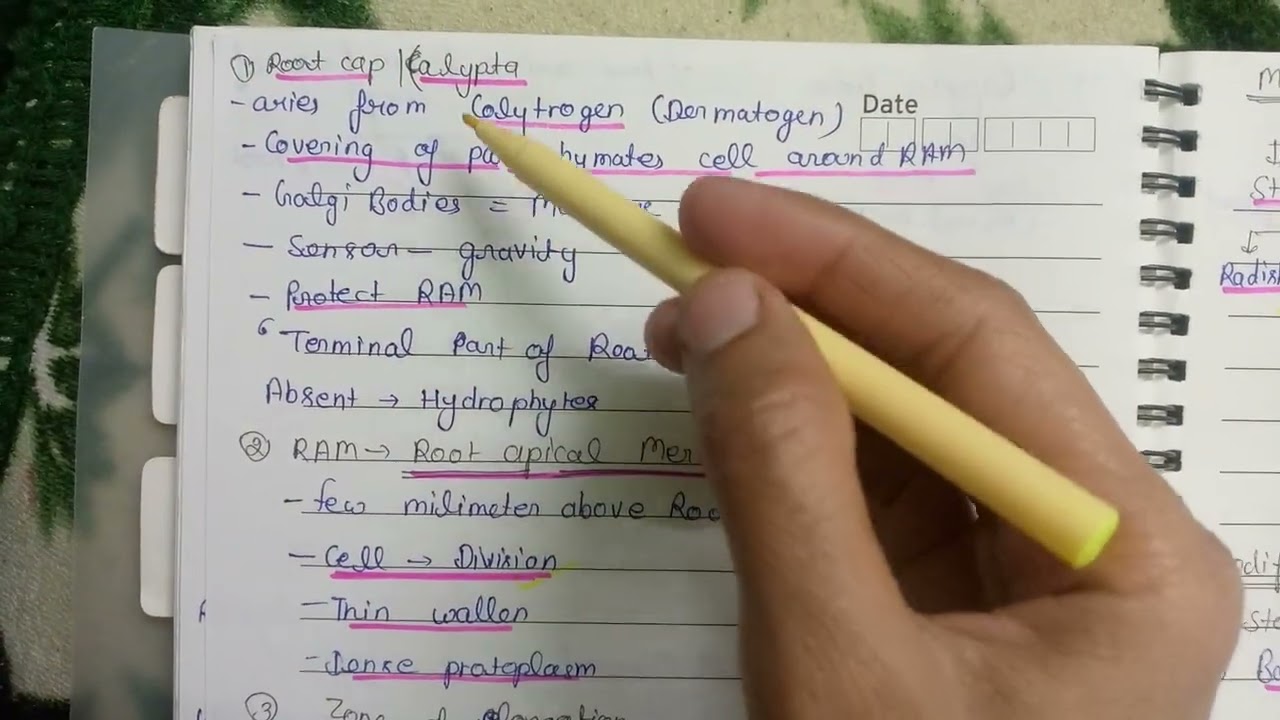 ① Root cap | Calypta
- aries from Calytrogen (Dermatogen)
Date
- Covering of cell around RAM
- Golgi Bodies =
- Sensor - gravity
- Protect RAM
Terminal Part of Root
Absent → Hydrophytes
② RAM → Root apical
- few milimeter above
- Cell → Division
- Thin wallen
- Dense protoplasm
③ Zone
Radis